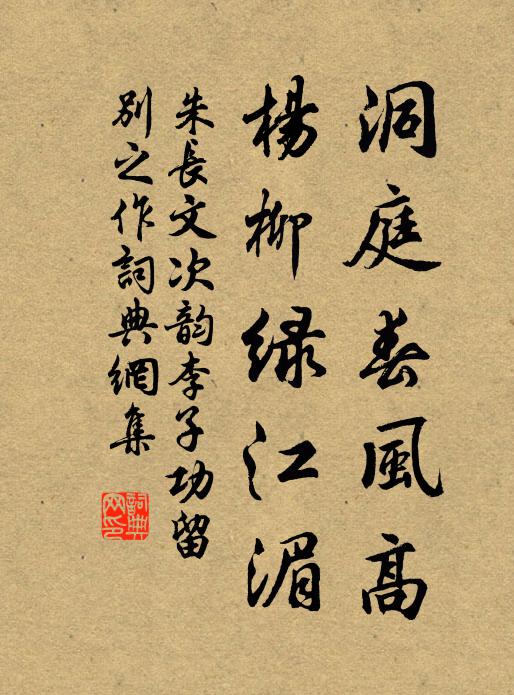 洞庭春風高
楊柳綠江湄
朱長文次韵李子功留
別之作詞典網集
詞典網印